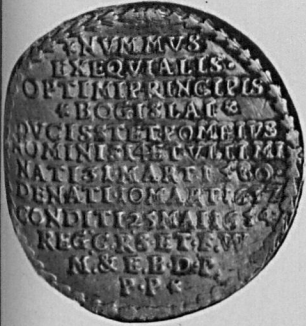 NUMMUS
EXEQUIALIS·
OPTIMI PRINCIPIS
BOGISLAI
DUCIS STET POM EIUS
NOMINIS 14 ET ULTIMI
NATI 31 MARTI 80·
DENATI·10 MARTI 1637
CONDITI·25 MAI 1654·
REG G RS ET E W
M & E B D P
P·P